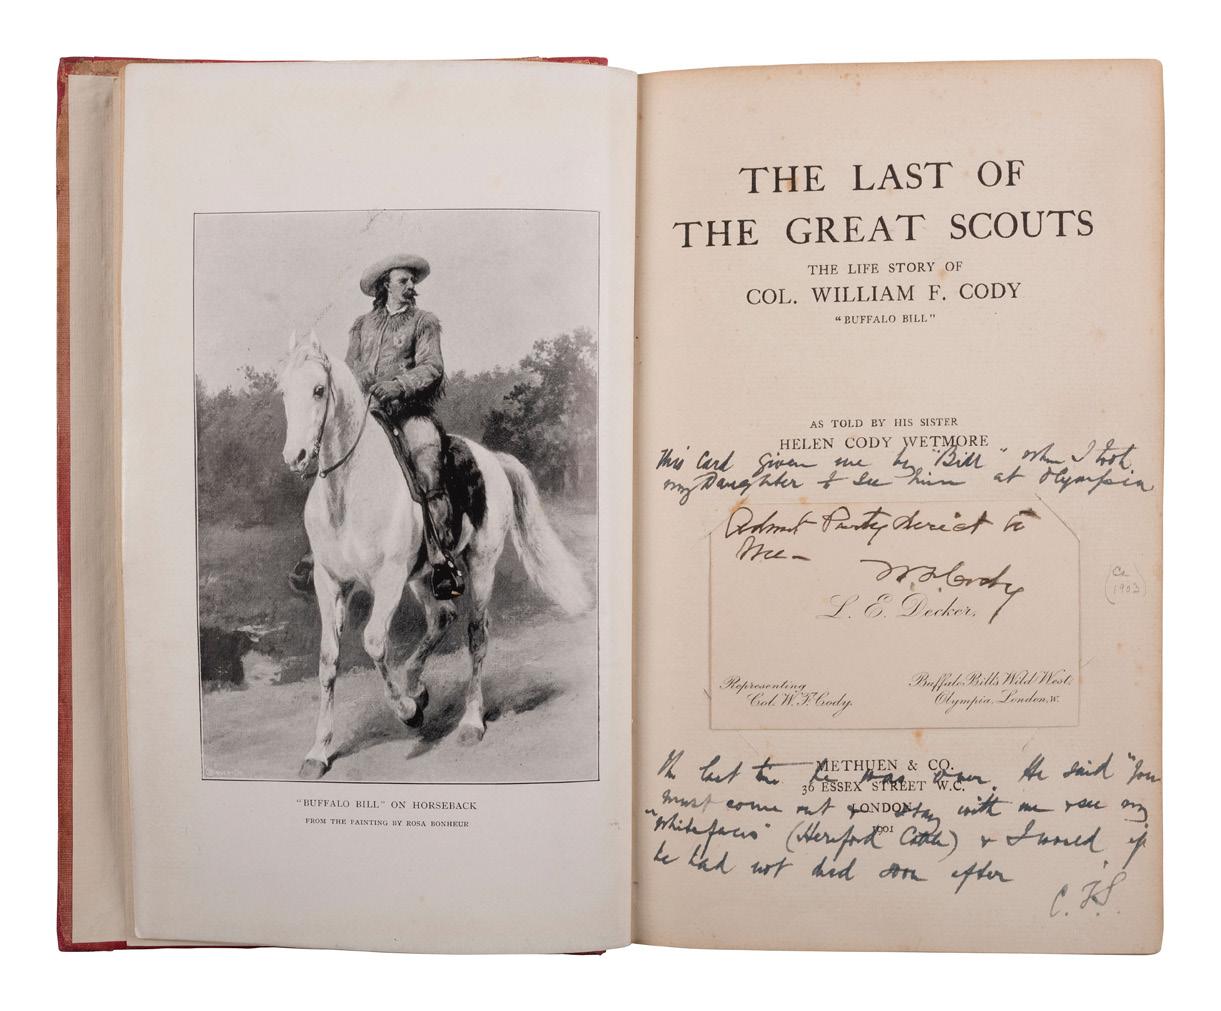 "BUFFALO BILL" ON HORSEBACK
FROM THE PAINTING BY ROSA BONHEUR
THE LAST OF
THE GREAT SCOUTS
THE LIFE STORY OF
COL. WILLIAM F. CODY
"BUFFALO BILL"
AS TOLD BY HIS SISTER
HELEN CODY WETMORE
This Card given me by "Bill" when I took
my Daughter to see him at Olympia
Admit Party direct to
me –
W. F. Cody
L. E. Decker.
Representing
Col. W. F. Cody.
Buffalo Bill's Wild West,
Olympia, London, W.
Ca
1903
METHUEN & CO.
36 ESSEX STREET W.C.
LONDON
1901
The last time he was over. He said "You
must come out & stay with me & see my
"Whitefaces" (Hereford Cattle) & I would if
he had not died soon after
C. F. S.